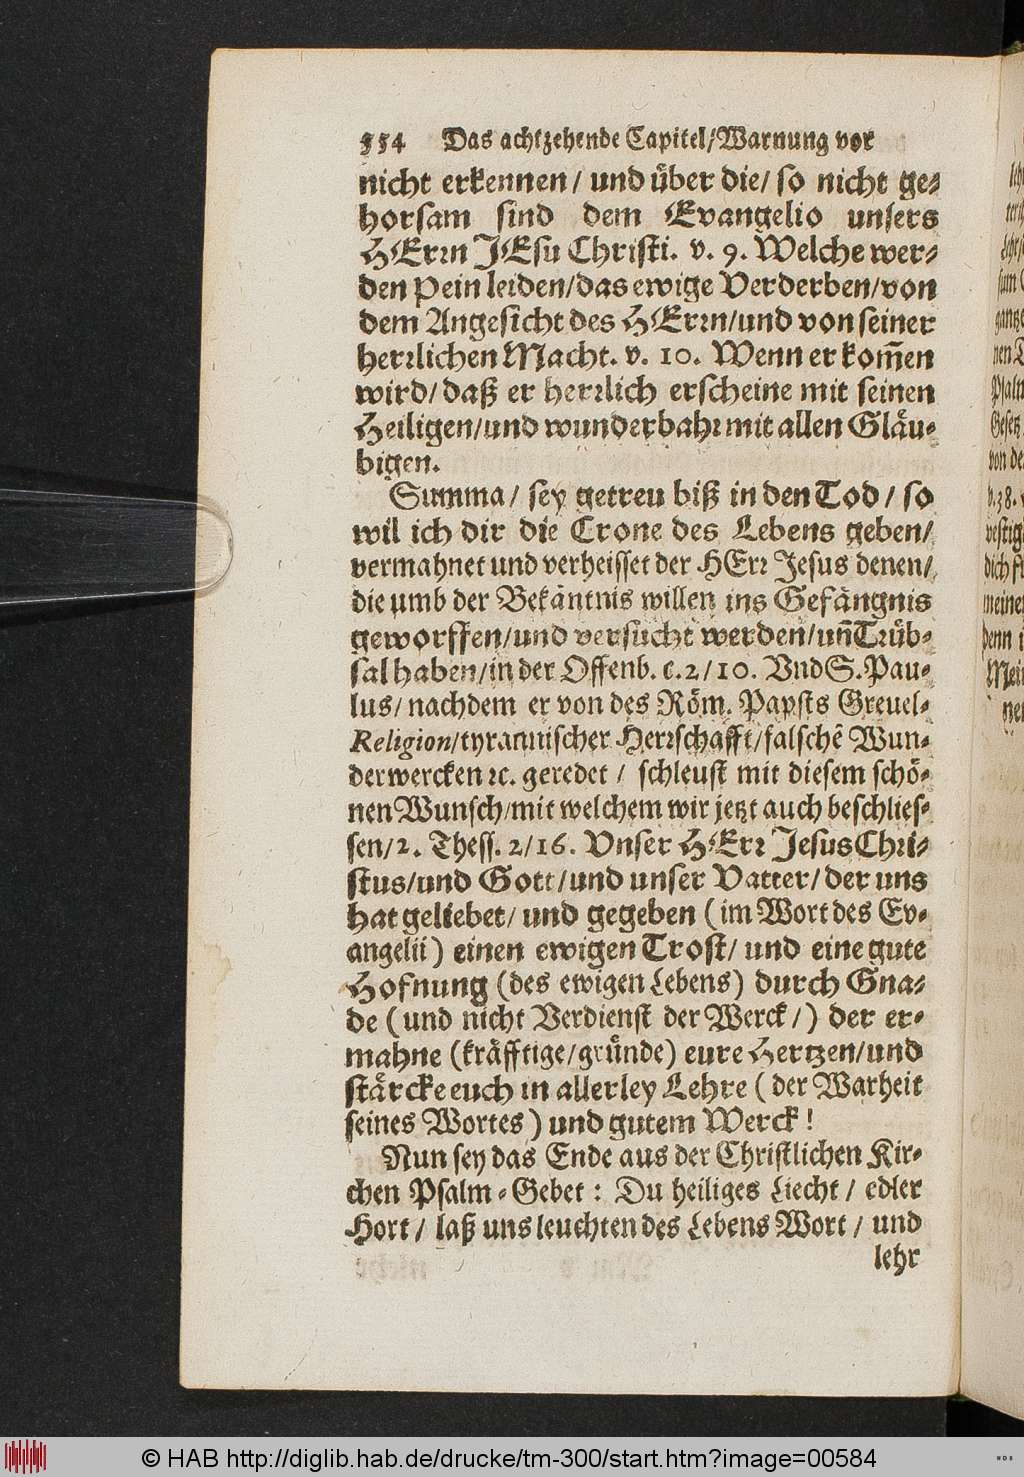 554 Das achtzehende Capitel/Warnung vor
nicht erkennen / und über die/ so nicht ge-
horsam sind dem Evangelio unsers
HErrn JEsu Christi. v. 9. Welche wer-
den Pein leiden/das ewige Verderben/von
dem Angesicht des HErrn/und von seiner
herrlichen Macht. v. 10. Wenn er kom̃en
wird/ daß er herrlich erscheine mit seinen
Heiligen/und wunderbahr mit allen Gläu-
bigen.
Summa / sey getreu biß in den Tod / so
wil ich dir die Crone des Lebens geben/
vermahnet und verheisset der HErr Jesus denen/
die umb der Bekäntnis willen ins Gefängnis
geworffen/und versucht werden/uñ Trüb-
sal haben/in der Offenb. c.2/10. Und S. Pau-
lus/ nachdem er von des Röm. Papsts Greuel-
Religion/tyrannischer Herrschafft/falschẽ Wun-
derwercken ꝛc. geredet / schleust mit diesem schö-
nen Wunsch/mit welchem wir jetzt auch beschlies-
sen/2. Thess. 2/16. Unser HErr Jesus Chri-
stus/und Gott/und unser Vatter/der uns
hat geliebet/ und gegeben (im Wort des Ev-
angelii) einen ewigen Trost/ und eine gute
Hofnung (des ewigen Lebens) durch Gna-
de (und nicht Verdienst der Werck/) der er-
mahne (kräfftige/gründe) eure Hertzen/und
stärcke euch in allerley Lehre (der Warheit
seines Wortes) und gutem Werck!
Nun sey das Ende aus der Christlichen Kir-
chen Psalm-Gebet: Du heiliges Liecht / edler
Hort / laß uns leuchten des Lebens Wort / und
lehr
© HAB http://diglib.hab.de/drucke/tm-300/start.htm?image=00584